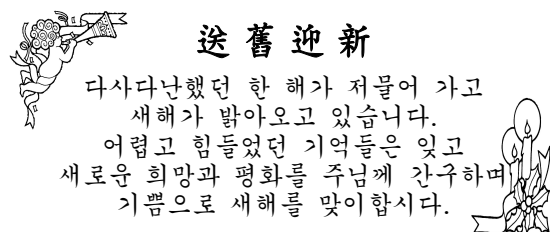 送舊迎新
다사다난했던 한 해가 저물어 가고
새해가 밝아오고 있습니다.
어렵고 힘들었던 기억들은 잊고
새로운 희망과 평화를 주님께 간구하며
기쁨으로 새해를 맞이합시다.